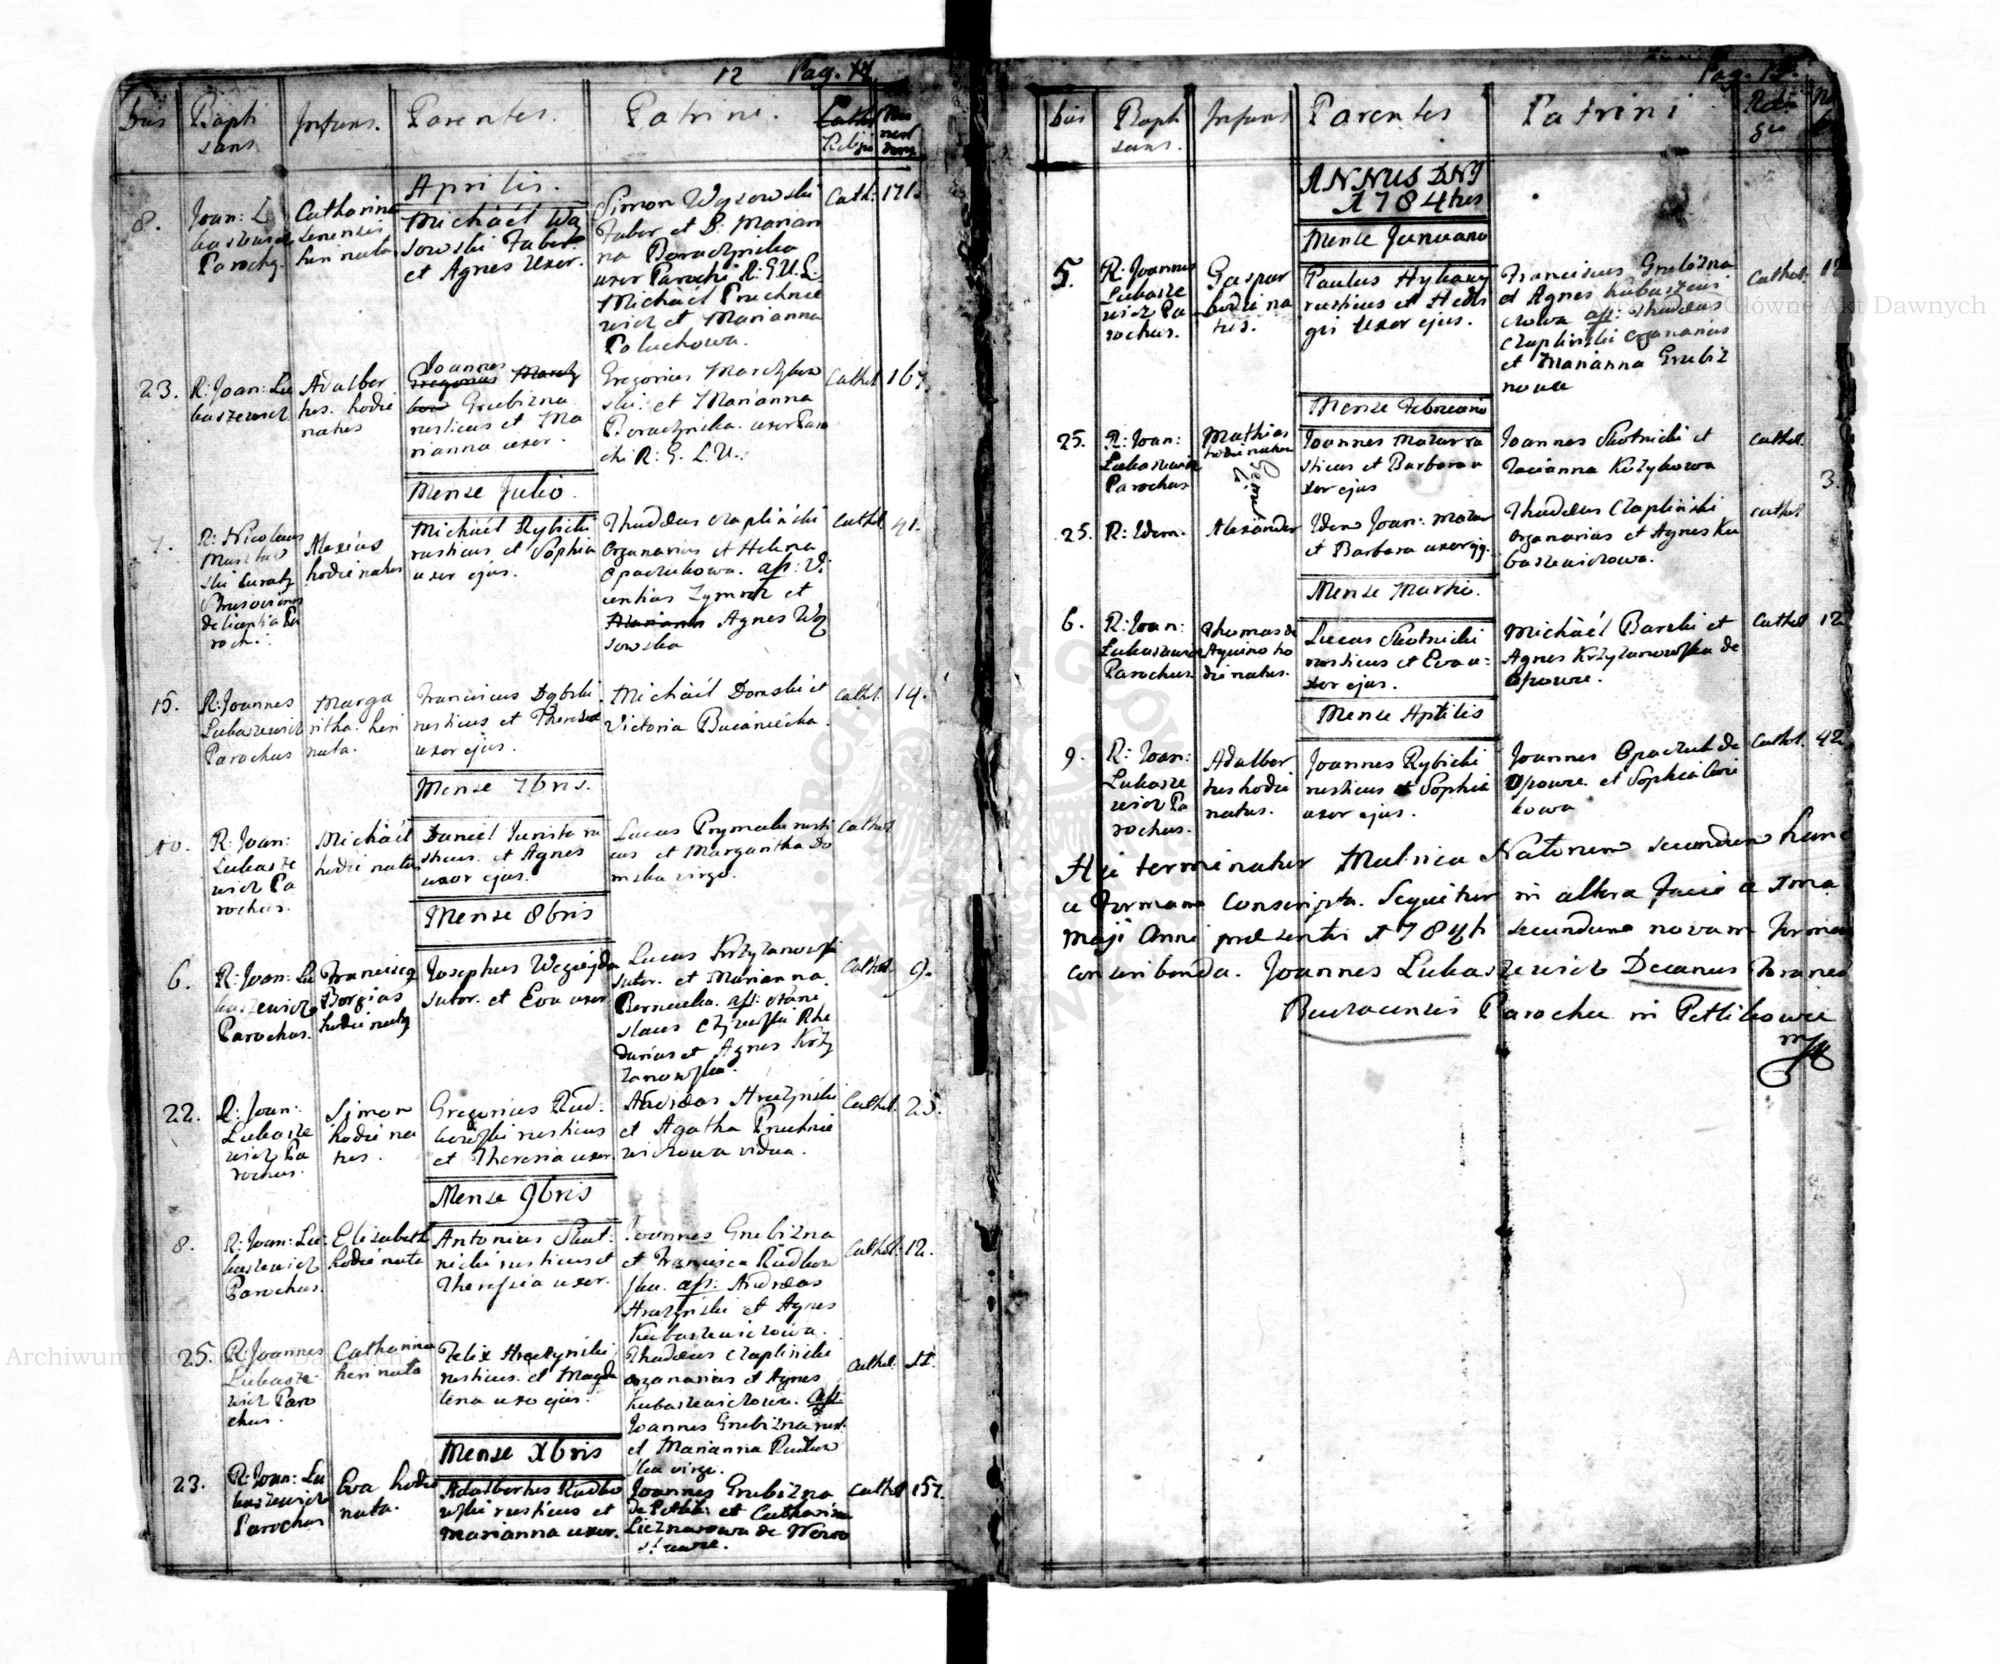 12 Pag.
Dies
Bapti
sans
Infans.
Parentes.
Patrini.
Religio
Aprilis.
8.
Joan: L
baszewicz
Parochq.
Catharina
Senensis
heri nata
Michäel Wy
sowski Faber
et Agnes Uxor.
Simon Wysowski
Faber et D. Marian
na Boraczynska
uxor Parochi R: G.U.L:
Michäel Pruchnie
wicz et Marianna
Paluchowa.
Cath:
171.
23.
R: Joan: Lu
baszewicz
Adalber
tus. hodie
natus
Joannes
Gregorius
Grubizna
rusticus et Ma
rianna uxor.
Gregorius Marczkow
ski et Marianna
Boraczynska uxor Paro
chi R: G. L.U.:
Cathol
167.
Mense Julio.
7.
R: Nicolaus
Alexius
hodie natus
Michäel Rybicki
rusticus et Sophia
uxor ejus.
Thaddeus Czaplinski
Organarius et Helena
Opaczukowa. ass: Vi
centius Zymro et
Agnes Wy
sowska
Cathol
41.
15.
R: Joannes
Lubaszewicz
Parochus
Marga
ritha. heri
nata.
Franciscus Dębski
rusticus et Theresia
uxor ejus.
Michäel Domski et
Victoria
Cathol.
14.
Mense 7bris.
10.
R: Joan:
Lubasze
wicz Pa
rochus.
Michäel
hodie natus
Daniel Jurista ru
sticus. et Agnes
uxor ejus.
Lucas Prymaka rusti
cus et Margaritha Do
mska virgo.
Cathol
Mense 8bris
6.
R: Joan: Lu
baszewicz
Parochus.
Franciscq
Borgias
hodie natq
Josephus Węgiejda
sutor. et Eva uxor
Lucas Krzyzanowski
sutor. et Marianna
ass: Stani
slaus
et Agnes Krzy
zanowska.
Cathol.
9.
22.
R: Joan:
Lubasze
wicz Pa
rochus.
Simon
hodie na
tus.
Gregorius Rud:
kowski rusticus
et Theresia uxor.
Andreas Hraczynski
et Agatha Pruchnie
wiczowa vidua.
Cathol.
25.
Mense 9bris
8.
R: Joan: Lu:
baszewicz
Parochus.
Elisabeth
hodie nata
Antonius Skot:
nicki rusticus et
Theressia uxor.
Joannes Grubizna
et Francisca Rudkow
ska. ass: Andreas
Hraczynski et Agnes
Kubaszewiczowa.
Cathol.
12.
25.
R: Joannes
Lubasze-
wicz Paro
chus.
Catharina
heri nata
Felix Hraczynski
rusticus. et Magda
lena uxo ejus.
Thaddeus Czaplinski
Organarius et Agnes
Kubaszewiczowa. ass:
Joannes Grubizna rust.
et Marianna Rudkow
ska virgo.
Cathol.
11.
Mense Xbris
23.
R: Joan: Lu
baszewicz
Parochus
Eva hodie
nata.
Adalbertus Rudko
wski rusticus et
Marianna uxor.
Joannes Grubizna
de Petlik: et Catharina
Cathol
157.
Pag.
Dies
Bapti
sans.
Infans
Parentes
Patrini
Reli
gio
ANNUS DNI
1784tus
Mense Januario
5.
R: Joannes
Lubasze
wicz Pa
rochus.
Gaspar
hodie na
tus.
Paulus
rusticus et Hedvi
gis Uxor ejus.
Franciscus Grubizna
et Agnes Kubaszewi
czowa ass: Thaddeus
Czaplinski organarius
et Marianna Grubiz
nowa
Cathol.
12
Mense Februario
25.
R: Joan:
Lubaszewicz
Parochus
Mathias
hodie natus
Gemini
Joannes Mazur ru
sticus et Barbara u
xor ejus
Joannes Skotnicki et
Marianna Krzykowa
Cathol.
3.
25.
R: Idem.
Alexander
Idem Joan: Mazur
et Barbara uxor ejq.
Thaddeus Czaplinski
organarius et Agnes Ku
baszewiczowa.
Cathol
Mense Martio.
6.
R: Joan:
Lubaszewicz
Parochus.
Thomas de
Aquino ho
die natus.
Lucas Skotnicki
rusticus et Eva u-
xor ejus.
Michäel Barski et
Agnes Krzyzanowska de
Opowre.
Cathol
12
Mense Aprilis
9.
R: Joan:
Lubasze
wicz Pa
rochus.
Adalber
tus hodie
natus.
Joannes Rybicki
rusticus et Sophia
uxor ejus.
Joannes Opaczuk de
Opowre et Sophia
Cathol.
42
Hic terminatur Metrica Natorum secundum hanc
ce Formam conscripta. Sequitur in altera facie a 1ma
Maji Anni praesentis 1784ti secundum novam Formam
conscribenda. Joannes Lubaszewicz Decanus Foraneus
Parochus in Petlikowce
mp
Archiwum Główne Akt Dawnych
Archiwum Główne Akt Dawnych